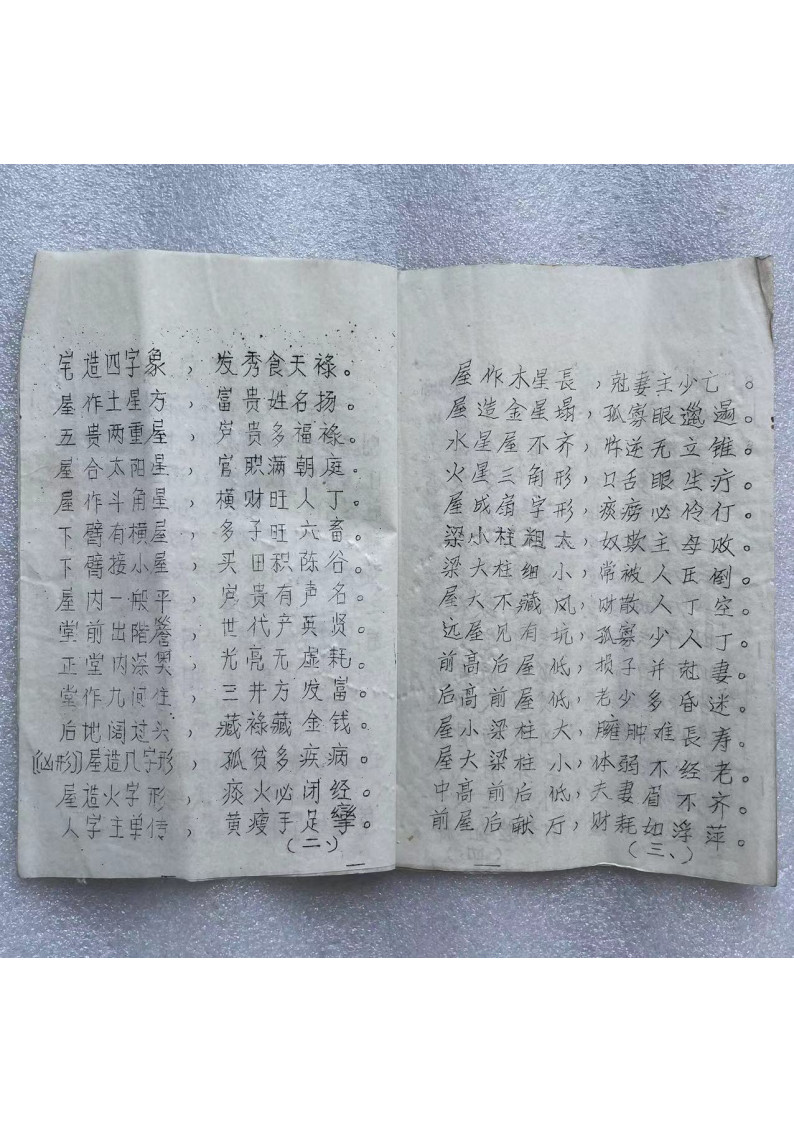 宅造四字象，发秀食天禄。
屋作土星方，富贵姓名扬。
五贵两重屋，岁贵多福禄。
屋合太阳星，官职满朝庭。
屋作斗角星，横财旺人丁。
下臂有横屋，多子旺六畜。
下臂接小屋，买田积陈谷。
屋内一般平，宫贵有声名。
堂前出階，世代产英贤。
正堂内深奥，光亮无虚耗。
堂作九间住，三井方发富。
后地阔过头，藏禄藏金钱。
(凶形)屋造几字形，孤贫多疾病。
屋造火字形，痰火必闭经。
人字主单传，黄瘦手足孿。
(二、)
屋作木星長，尅妻主少亡。
屋造金星塌，孤寡眼邋遢。
水星屋不齐，忤逆无立锥。
火星三角形，口舌眼生疔。
屋成扇字形，痰痨必伶仃。
梁小柱粗大，奴欺主母败。
梁大柱细小，常被人压倒。
屋大不藏风，财散人丁空。
远屋见有坑，孤寡少人丁。
前高后屋低，损子并尅妻。
后高前屋低，老少多昏迷。
屋小梁柱大，臃肿难長寿。
屋大梁柱小，体弱不经老。
中高前后低，夫妻眉不齐。
前屋后献厅，财耗如浮萍。
(三、)